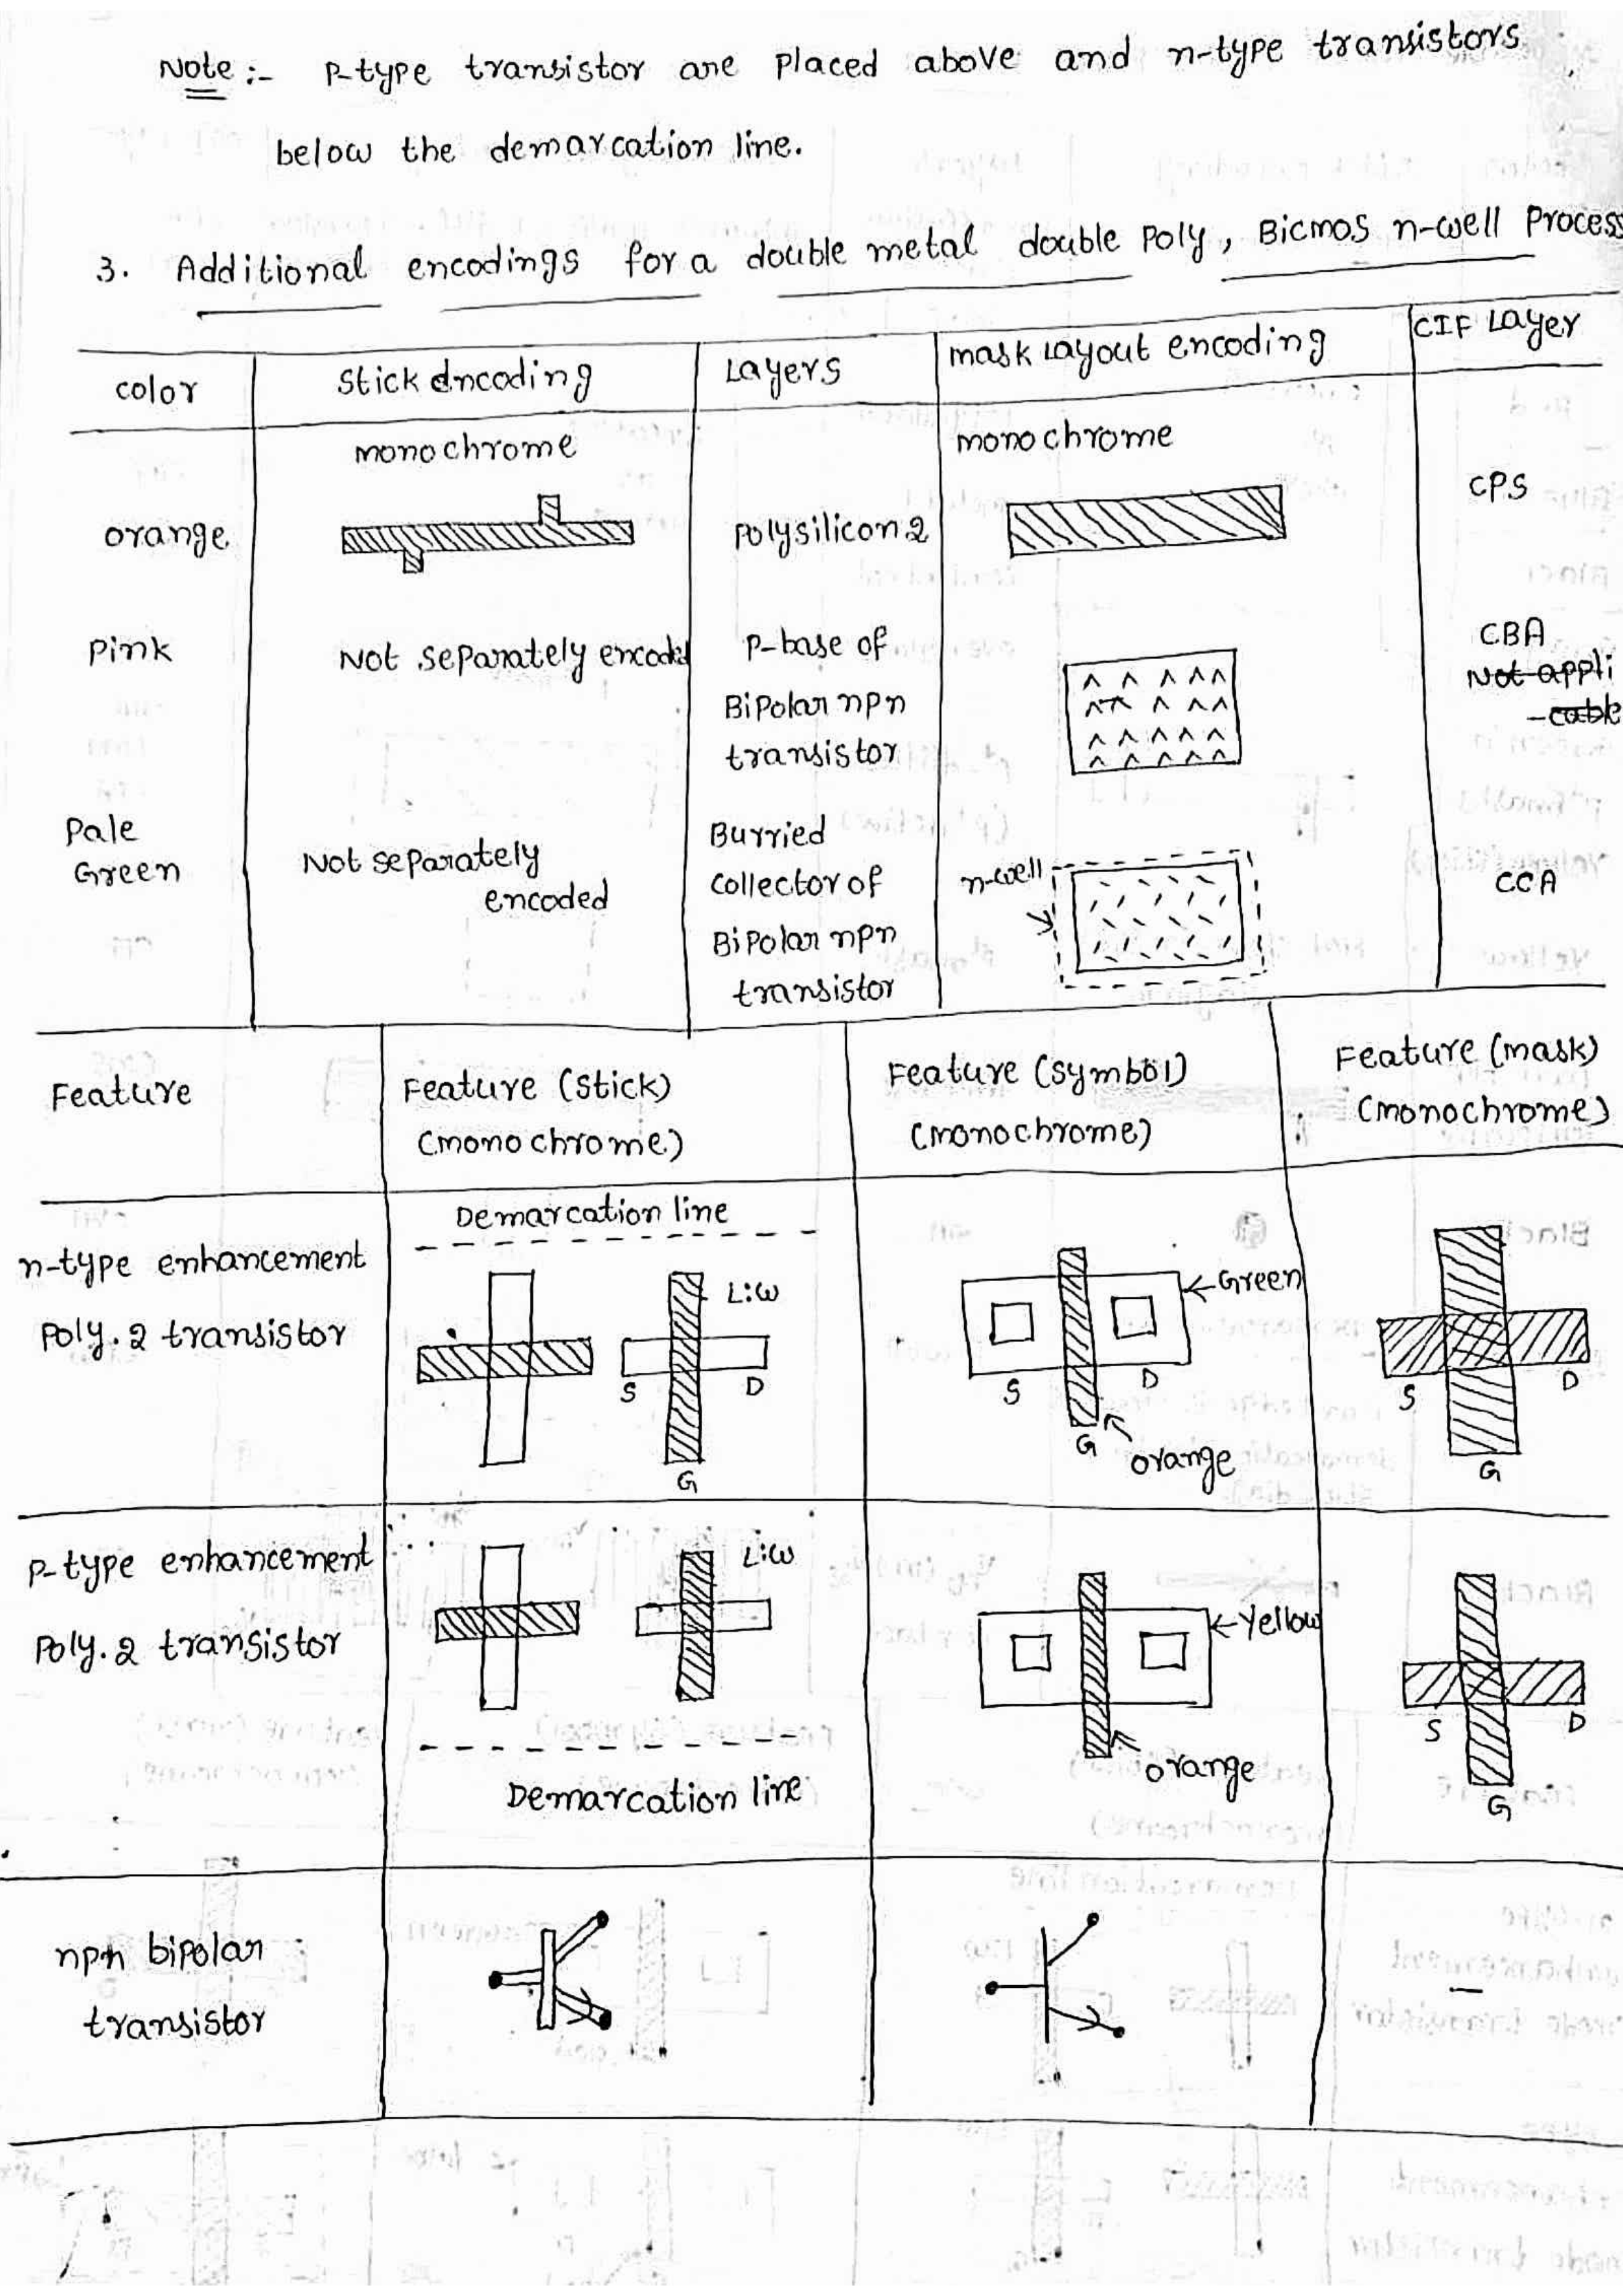 Note :- P-type transistor are placed above and n-type transistors
below the demarcation line.
3. Additional encodings for a double metal double poly, Bicmos n-well Process
color
Stick Encoding
Layers
mask Layout encoding
CIF Layer
monochrome
monochrome
orange
Polysilicon 2
CPS
Pink
Not separately encoded
P-base of
Bipolar npn
transistor
CBA
Not appli
-cable
Pale
Green
Not separately
encoded
Burried
collector of
Bipolar npn
transistor
n-well
CCA
Feature
Feature (stick)
(monochrome)
Feature (symbol)
(monochrome)
Feature (mask)
(monochrome)
n-type enhancement
Poly. 2 transistor
Demarcation line
L:W
S
D
G
Green
S
D
G
orange
S
D
G
P-type enhancement
Poly. 2 transistor
L:W
Demarcation line
Yellow
orange
S
D
G
npn bipolar
transistor
-